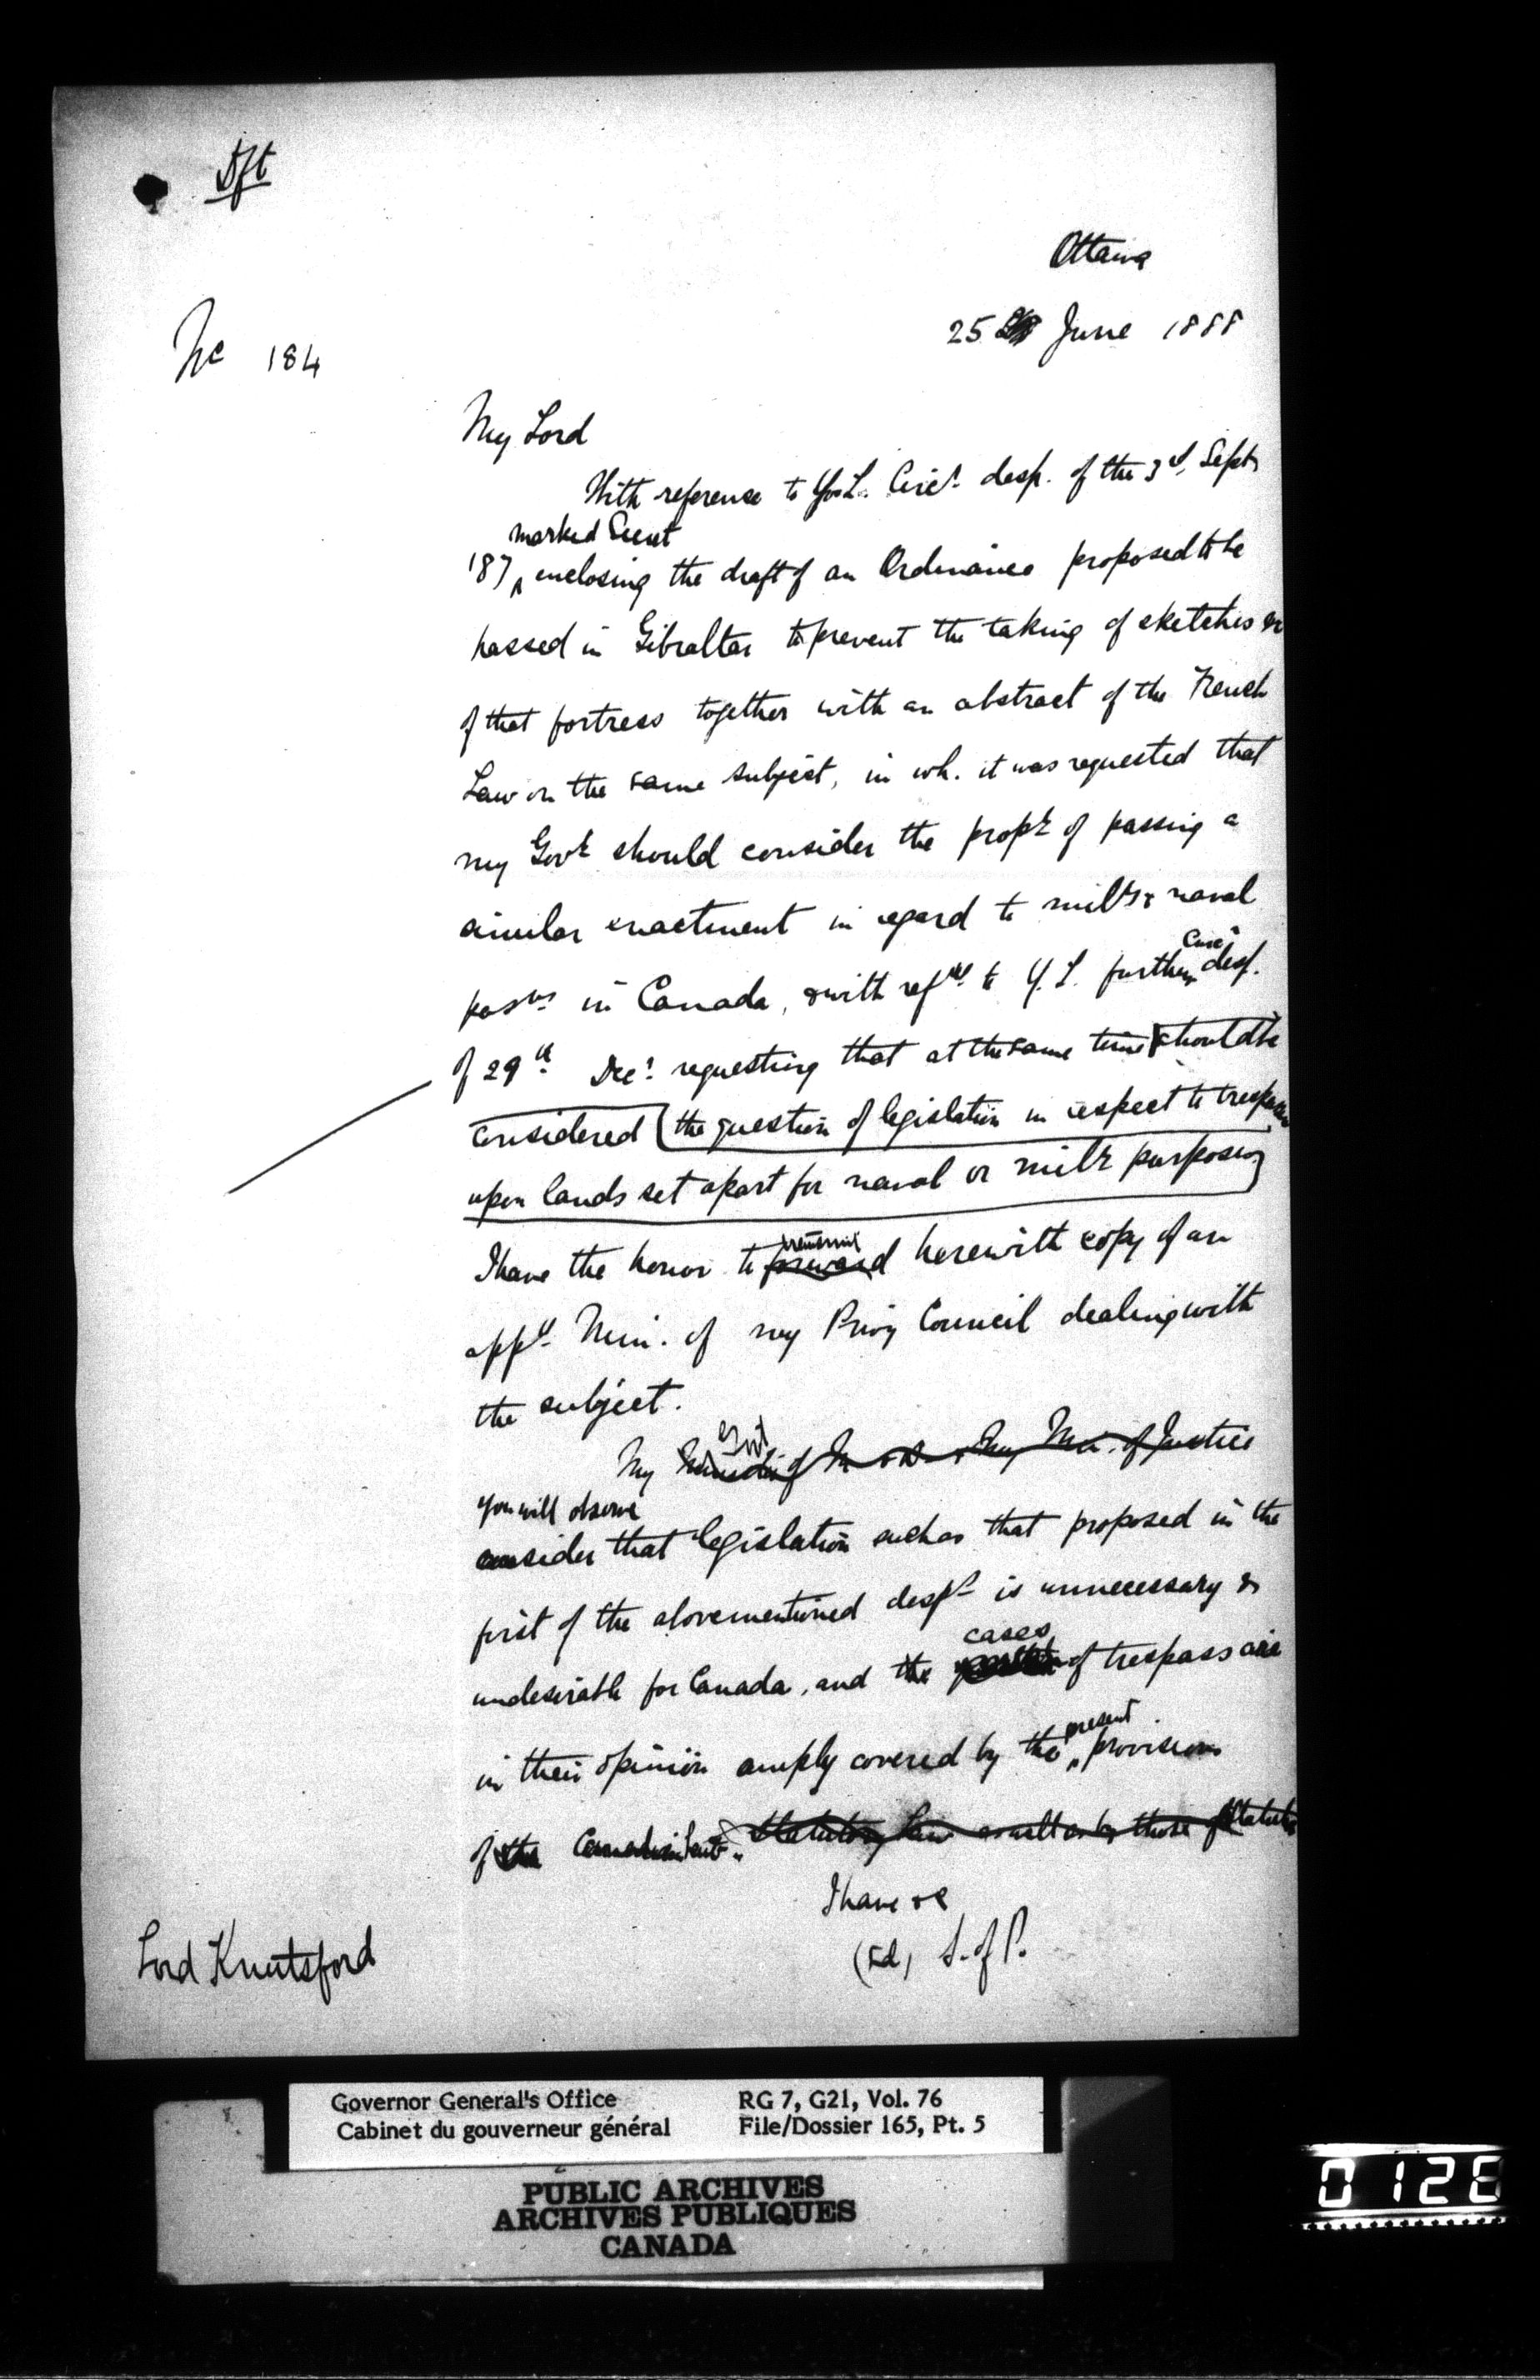 Dft
Ottawa
25 June 1888
No 184
My Lord
With reference to Yr L. Circr. desp. of the 3d. Sept
marked Secret
'87, enclosing the draft of an Ordinance proposed to be
passed in Gibraltar to prevent the taking of sketches &c
of that fortress together with an abstract of the French
Law on the same subject, in wh. it was requested that
my Govt should consider the propy of passing a
similar enactment in regard to milty & naval
Circr
posns in Canada, & with refce to Y.L. further desp.
of 29th Decr. requesting that at the same time should be
considered the question of legislation in respect to trespasses
upon lands set apart for naval or mily purposes,
transmit
I have the honor to forward herewith copy of an
appd. Min. of my Privy Council dealing with
the subject.
Govt
My Minister of M & D & my Min. of Justice
you will observe
consider that legislation such as that proposed in the
first of the abovementioned desps is unnecessary &
cases
undesirable for Canada, and the of trespass are
present
in their opinion amply covered by the provisions
of the Statutory Law as well as by those of Statute
I have &c
(Sd) S. of P.
Lord Knutsford
Governor General's Office RG 7, G21, Vol. 76
Cabinet du gouverneur général File/Dossier 165, Pt. 5
PUBLIC ARCHIVES
ARCHIVES PUBLIQUES
CANADA